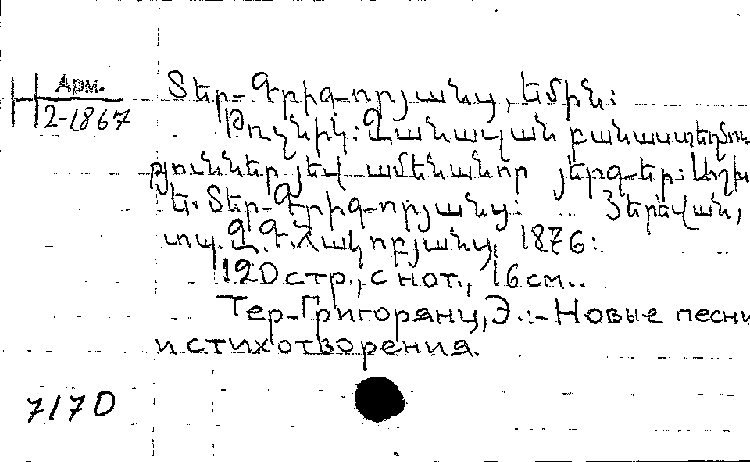 Арм.
2-1867
Տեր-Գրիգորյանց, Եմին:
Թռչնիկ: Զանազան բանաստեղծու
թյուններ յեվ ամենանոր յերգեր: Աշխ
Ե. Տեր-Գրիգորյանց: Յերեվան,
տպ. Զ. Գ. Հակոբյանց, 1876:
120 стр., с нот., 16 см..
Тер-Григорянц, Э.:- Новые песни
и стихотворения.
7170